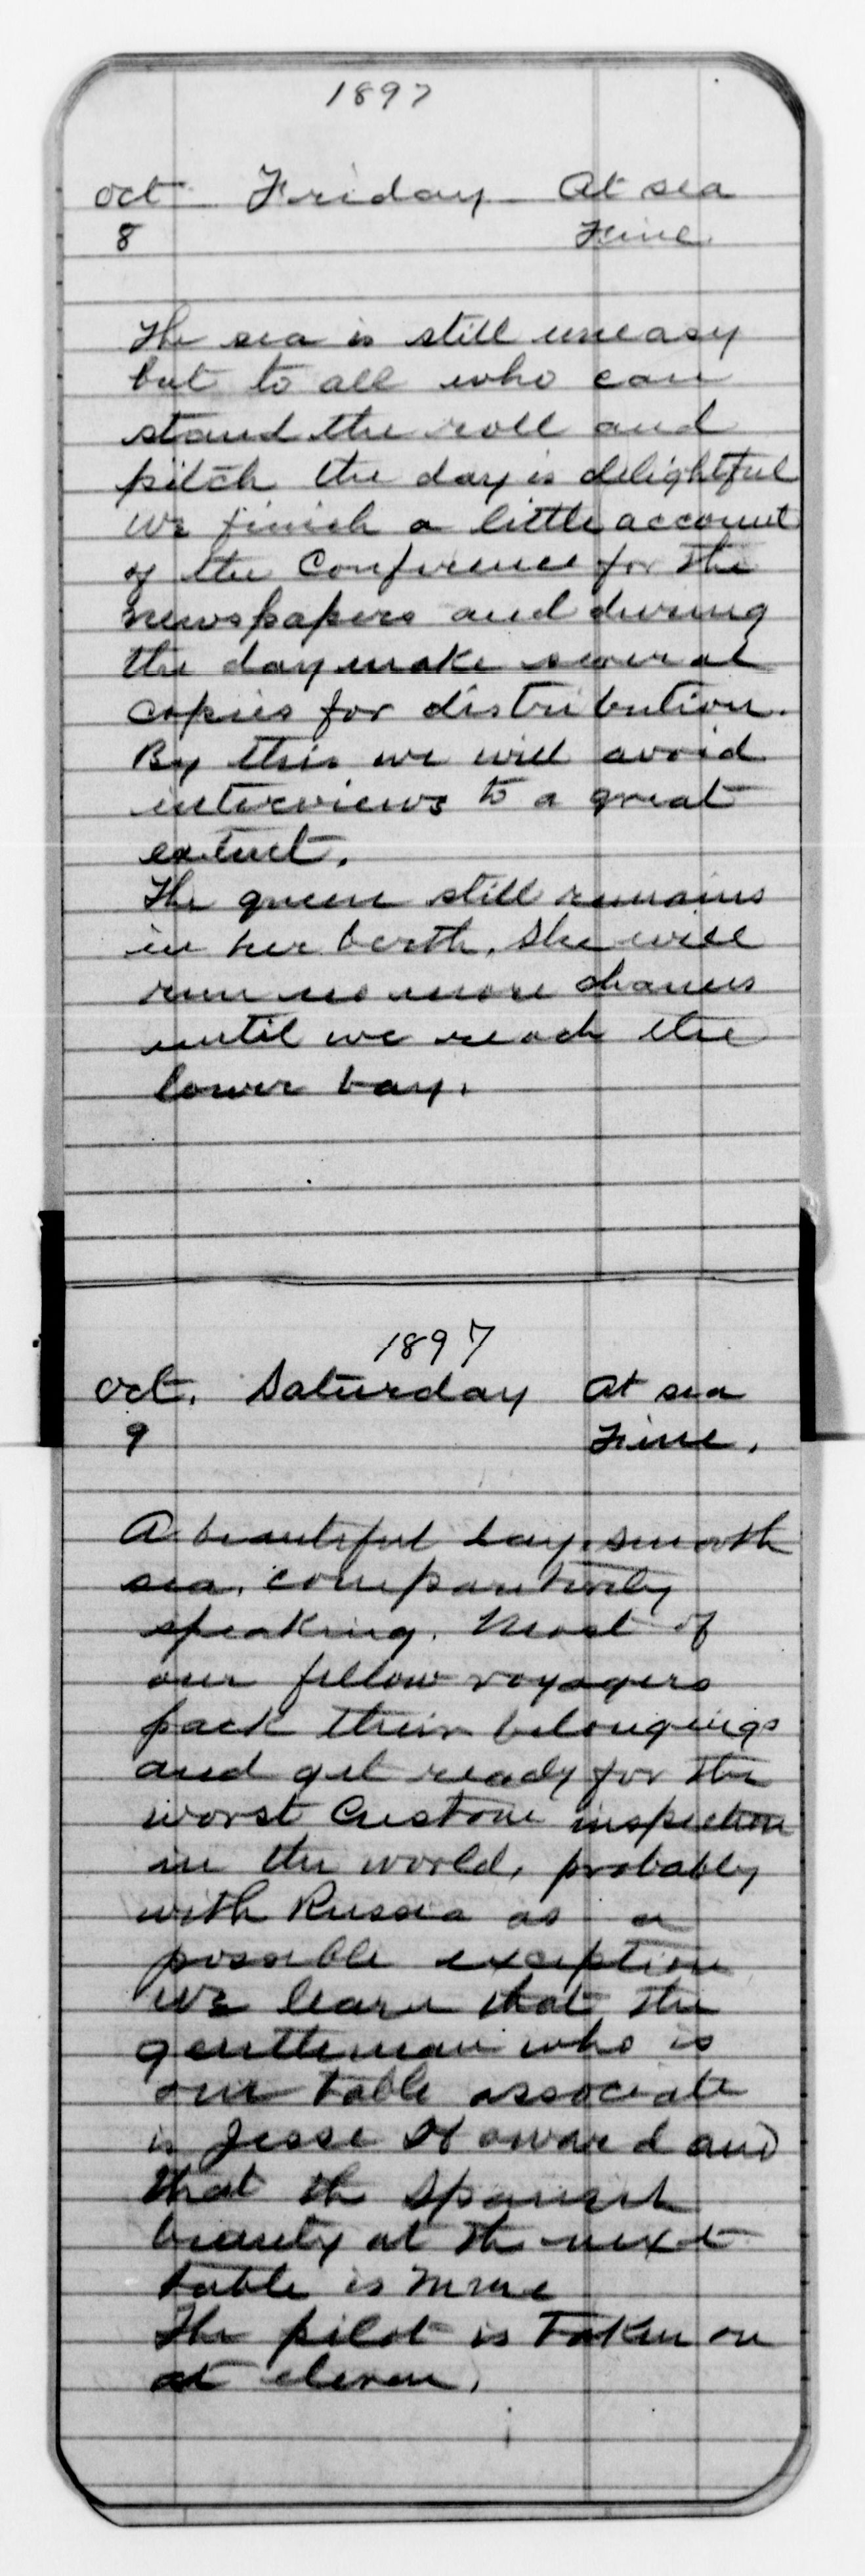 1897
Oct Friday At sea
8 Fine
The sea is still uneasy
but to all who can
stand the roll and
pitch the day is delightful
We finish a little account
of the Conference for the
newspapers and during
the day make several
copies for distribution.
By this we will avoid
interviews to a great
extent.
The queen still remains
in her berth. She will
run no more chances
until we reach the
lower bay.
1897
Oct. Saturday At sea
9 Fine.
A beautiful day. smooth
sea, comparatively
speaking. Most of
our fellow voyagers
pack their belongings
and get ready for the
worst Custom inspection
in the world, probably
with Russia as a
possible exception
We learn that the
gentleman who is
our table associate
is Jesse and
that the Spanish
beauty at the next
table is Mme
The pilot is taken on
at eleven.